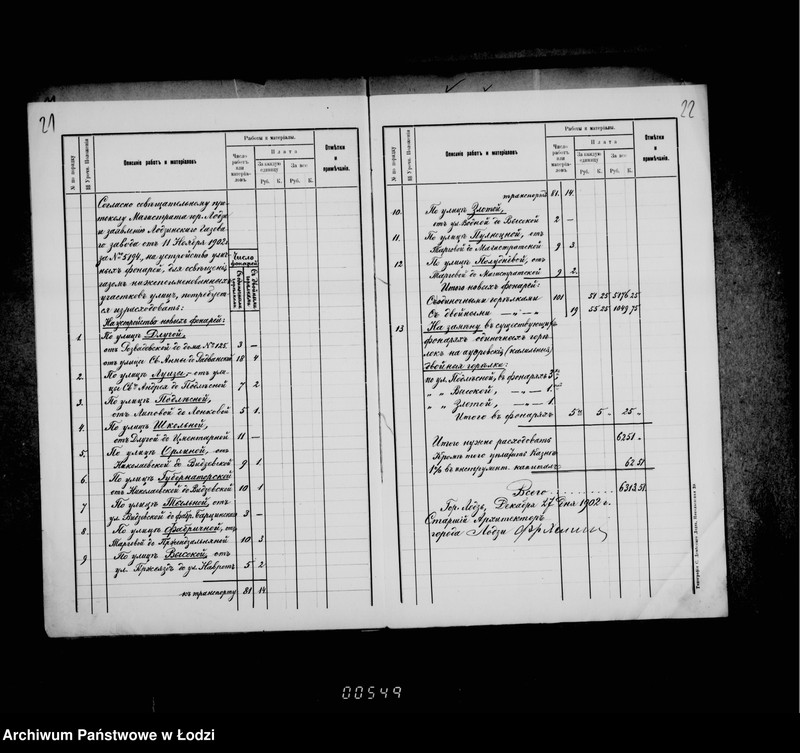 21
№ по порядку
№ Урочн. Положенія
Описаніе работъ и матеріаловъ
Работы и матеріалы.
Число работъ или матеріаловъ.
Плата
За каждую единицу
За все
Руб. К. Руб. К.
Отмѣтки и примѣчанія.
Согласно совѣщательному про-
токолу Магистрата гор. Лодзи
и заявленію Лодзинскаго Газова-
го завода отъ 11 Ноября 1902 г.
за № 5194, на устройство улич-
ныхъ фонарей, для освѣщенія
газомъ нижепоименованныхъ
участковъ улицъ, потребует-
ся израсходовать:
Число фонарей
съ одиночными горѣлками
съ двойными горѣлками
На устройство новыхъ фонарей:
1. По улицѣ Длугой,
отъ Розвадовской до дома № 125 3 —
отъ улицы Св. Анны до Радванской 18 4
2. По улицѣ Луизы, отъ ули-
цы Св. Андрея до Подлѣсной 7 2
3. По улицѣ Подлѣсной,
отъ Липовой до Лонковой 5 1.
4. По улицѣ Школьной,
отъ Длугой до Цментарной 11 —
5. По улицѣ Орлиной, отъ
Николаевской до Видзевской 9 1.
6. По улицѣ Губернаторской
отъ Николаевской до Видзевской 10 1
7. По улицѣ отъ
ул. Видзевской до фабр. 3 —
8. По улицѣ Фабричной, отъ
Тарговой до 10 3
9. По улицѣ Высокой, отъ
ул. Пржеяздъ до ул. Навротъ 5 2
къ транспорту 81 14
22
№ по порядку
№ Урочн. Положенія
Описаніе работъ и матеріаловъ
Работы и матеріалы.
Число работъ или матеріаловъ.
Плата
За каждую единицу
За все
Руб. К. Руб. К.
Отмѣтки и примѣчанія.
транспортъ 81. 14.
10. По улицѣ Злотой,
отъ ул. Водной до Высокой 2 —
11. По улицѣ Пулноцной, отъ
Тарговой до Магистратской 9 3.
12 По улицѣ Полуднёвой, отъ
Тарговой до Магистратской 9 2.
Итого новыхъ фонарей:
Съ одиночными горѣлками 101 51 25 5176 25
Съ двойными —„— 19 55 25 1049 75
13 На замѣну въ существующихъ
фонаряхъ одиночныхъ горѣ-
локъ на ауэровскія (калильныя)
двойныя горѣлки:
по ул. Подлѣсной, въ фонаряхъ 3
„ „ Высокой, —„— 1.
„ „ Злотой, —„— 1.
Итого въ фонаряхъ 5 5 „ 25 „
Итого нужно расходовать 6251 „
Кромѣ того уплатить Казнѣ
1% въ инструмент. капиталъ 62 51
Всего 6313.51.
Гор. Лодзь, Декабря 27 дня 1902 г.
Старшій Архитекторъ
города Лодзи
00549
Archiwum Państwowe w Łodzi